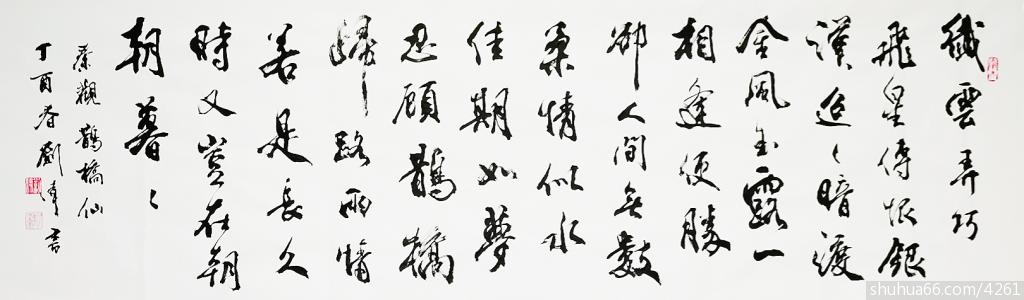 纖雲弄巧
飛星傳恨銀
漢迢々暗渡
金風玉露一
相逢便勝
卻人間無數
柔情似水
佳期如夢
忍顧鵲橋
歸路兩情
若是長久
時又豈在朝
朝暮々
秦觀鵲橋仙
丁酉春劉書
shuhua66.com/4261